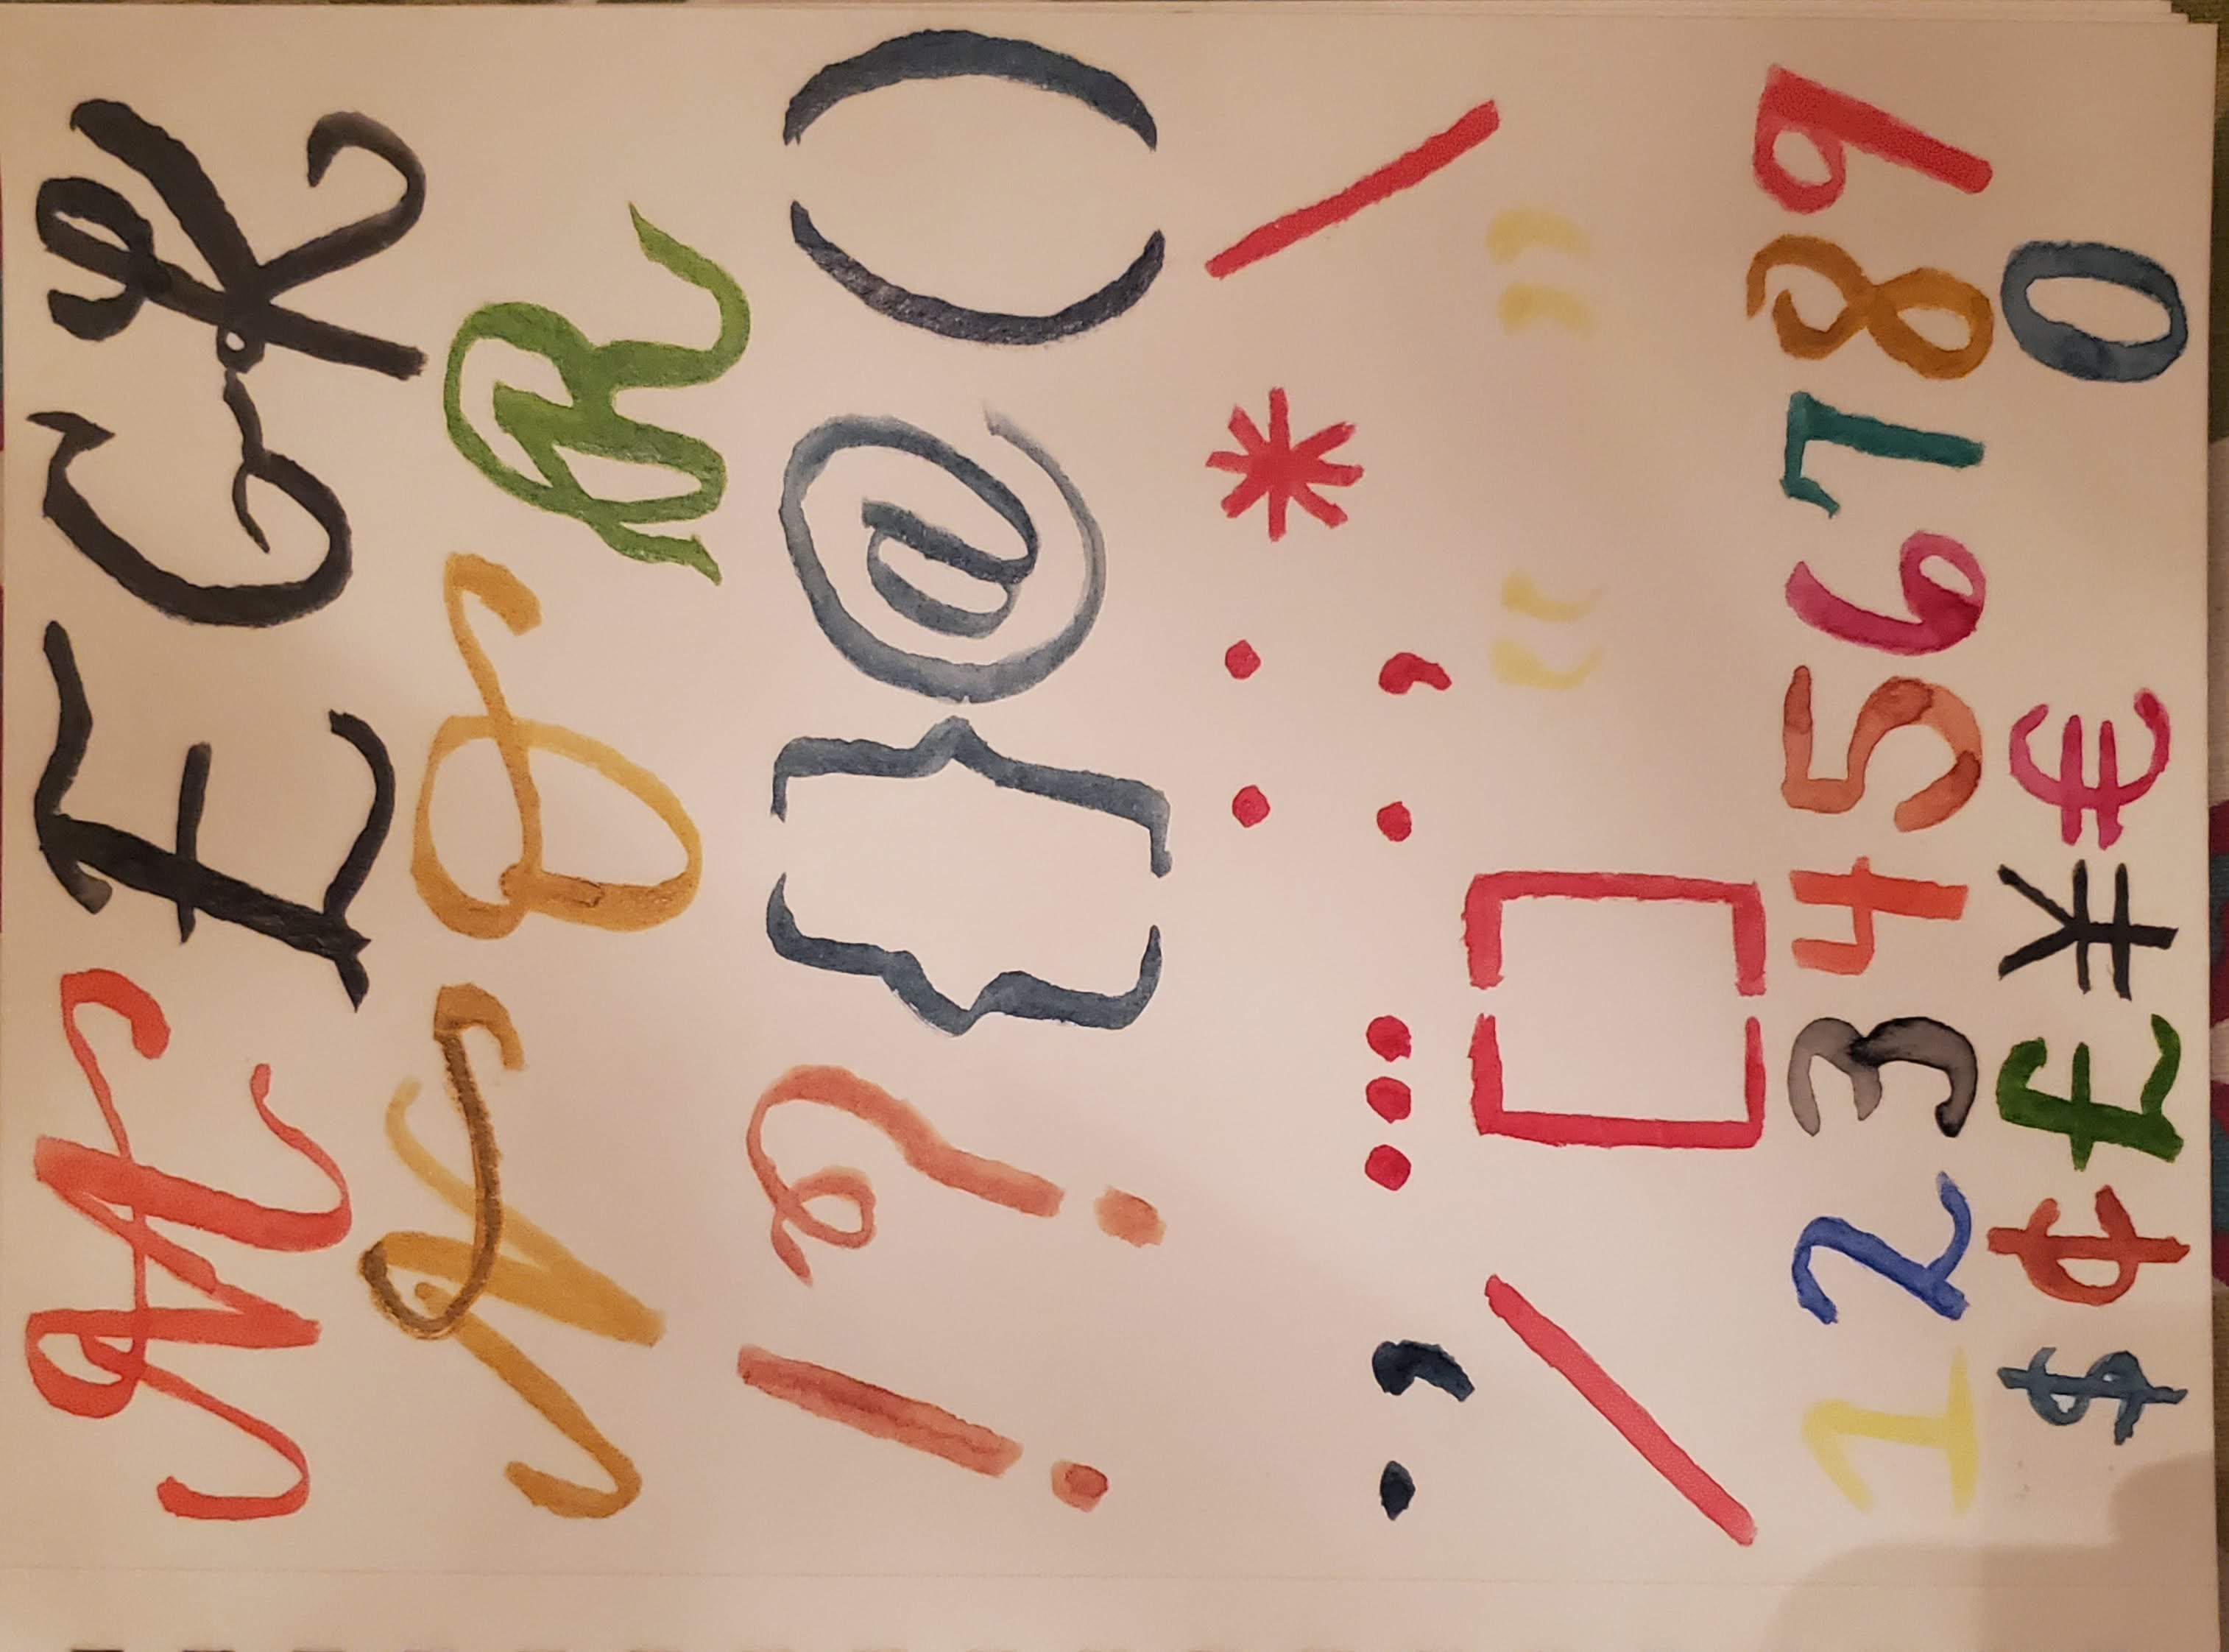 M E G K
N O R
! ? { } @ ( )
. , … : ; * \
/ [ ] “ ”
1 2 3 4 5 6 7 8 9
$ ¢ £ ¥ € 0